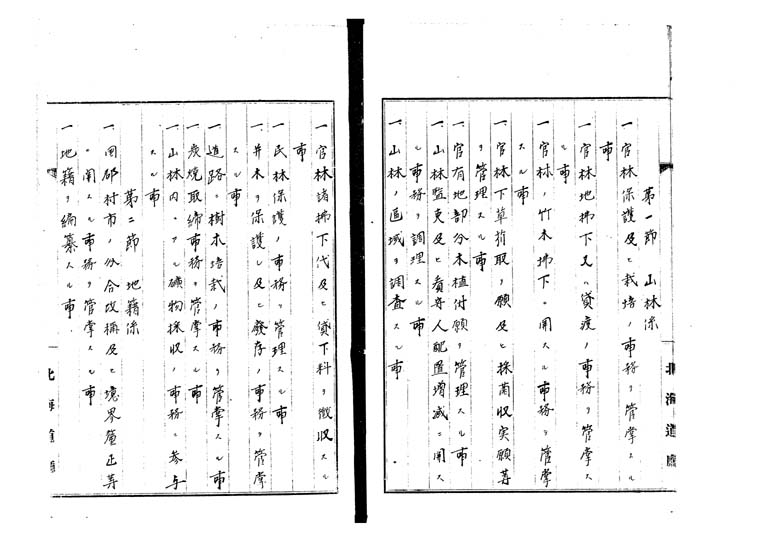 第一節 山林係
一 官林保護及ヒ栽培ノ事務ヲ管掌スル
事
一 官林地拂下又ハ貸渡ノ事務ヲ管掌ス
ル事
一 官林ノ竹木拂下ニ関スル事務ヲ管掌
スル事
一 官林下草苅取ノ願及ヒ採菌収実願等
ヲ管理スル事
一 官有地部分木植付願ヲ管理スル事
一 山林監吏及ヒ看守人配置増減ニ関ス
ル事務ヲ調理スル事
一 山林ノ区域ヲ調査スル事
北海道廳
一 官林諸拂下代及ヒ貸下料ヲ徴収スル
事
一 民林保護ノ事務ヲ管理スル事
一 並木ヲ保護シ及ヒ廢存ノ事務ヲ管掌
スル事
一 道路ニ樹木培栽ノ事務ヲ管掌スル事
一 炭焼取締事務ヲ管掌スル事
一 山林内ニアル礦物採収ノ事務ニ参与
スル事
第二節 地籍係
一 国郡村市ノ分合改称及ヒ境界釐正等
ニ関スル事務ヲ管掌スル事
一 地籍ヲ編纂スル事
北海道廳